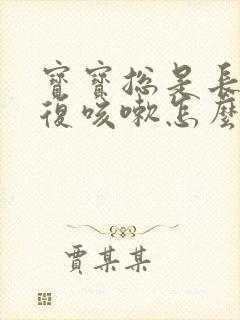 寶寶總是長
復咳嗽怎麼
賈某某